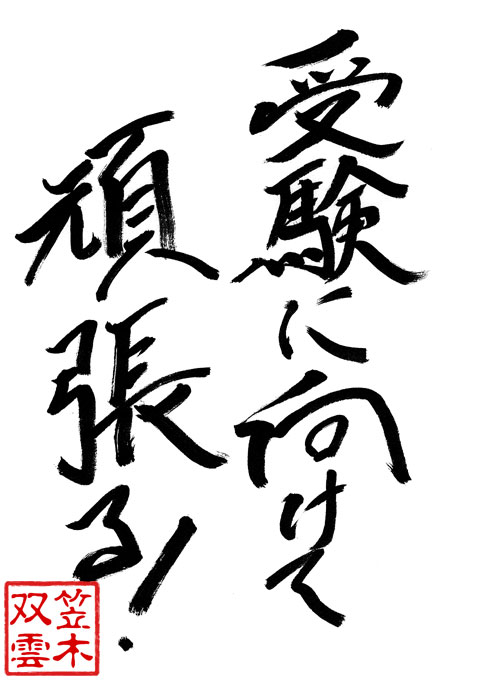 受験に向けて
頑張る!
笠木
双雲